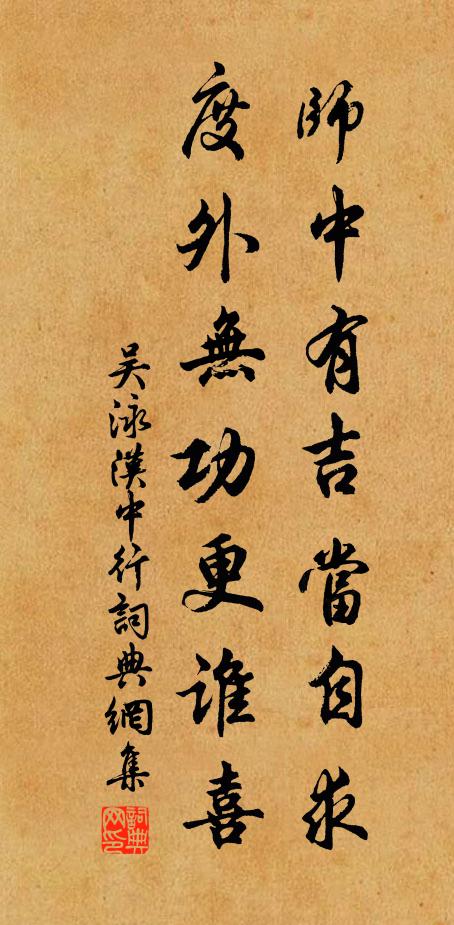 師中有吉當自求
度外無功更誰喜
吴泳漢中行詞典網集
詞典网印